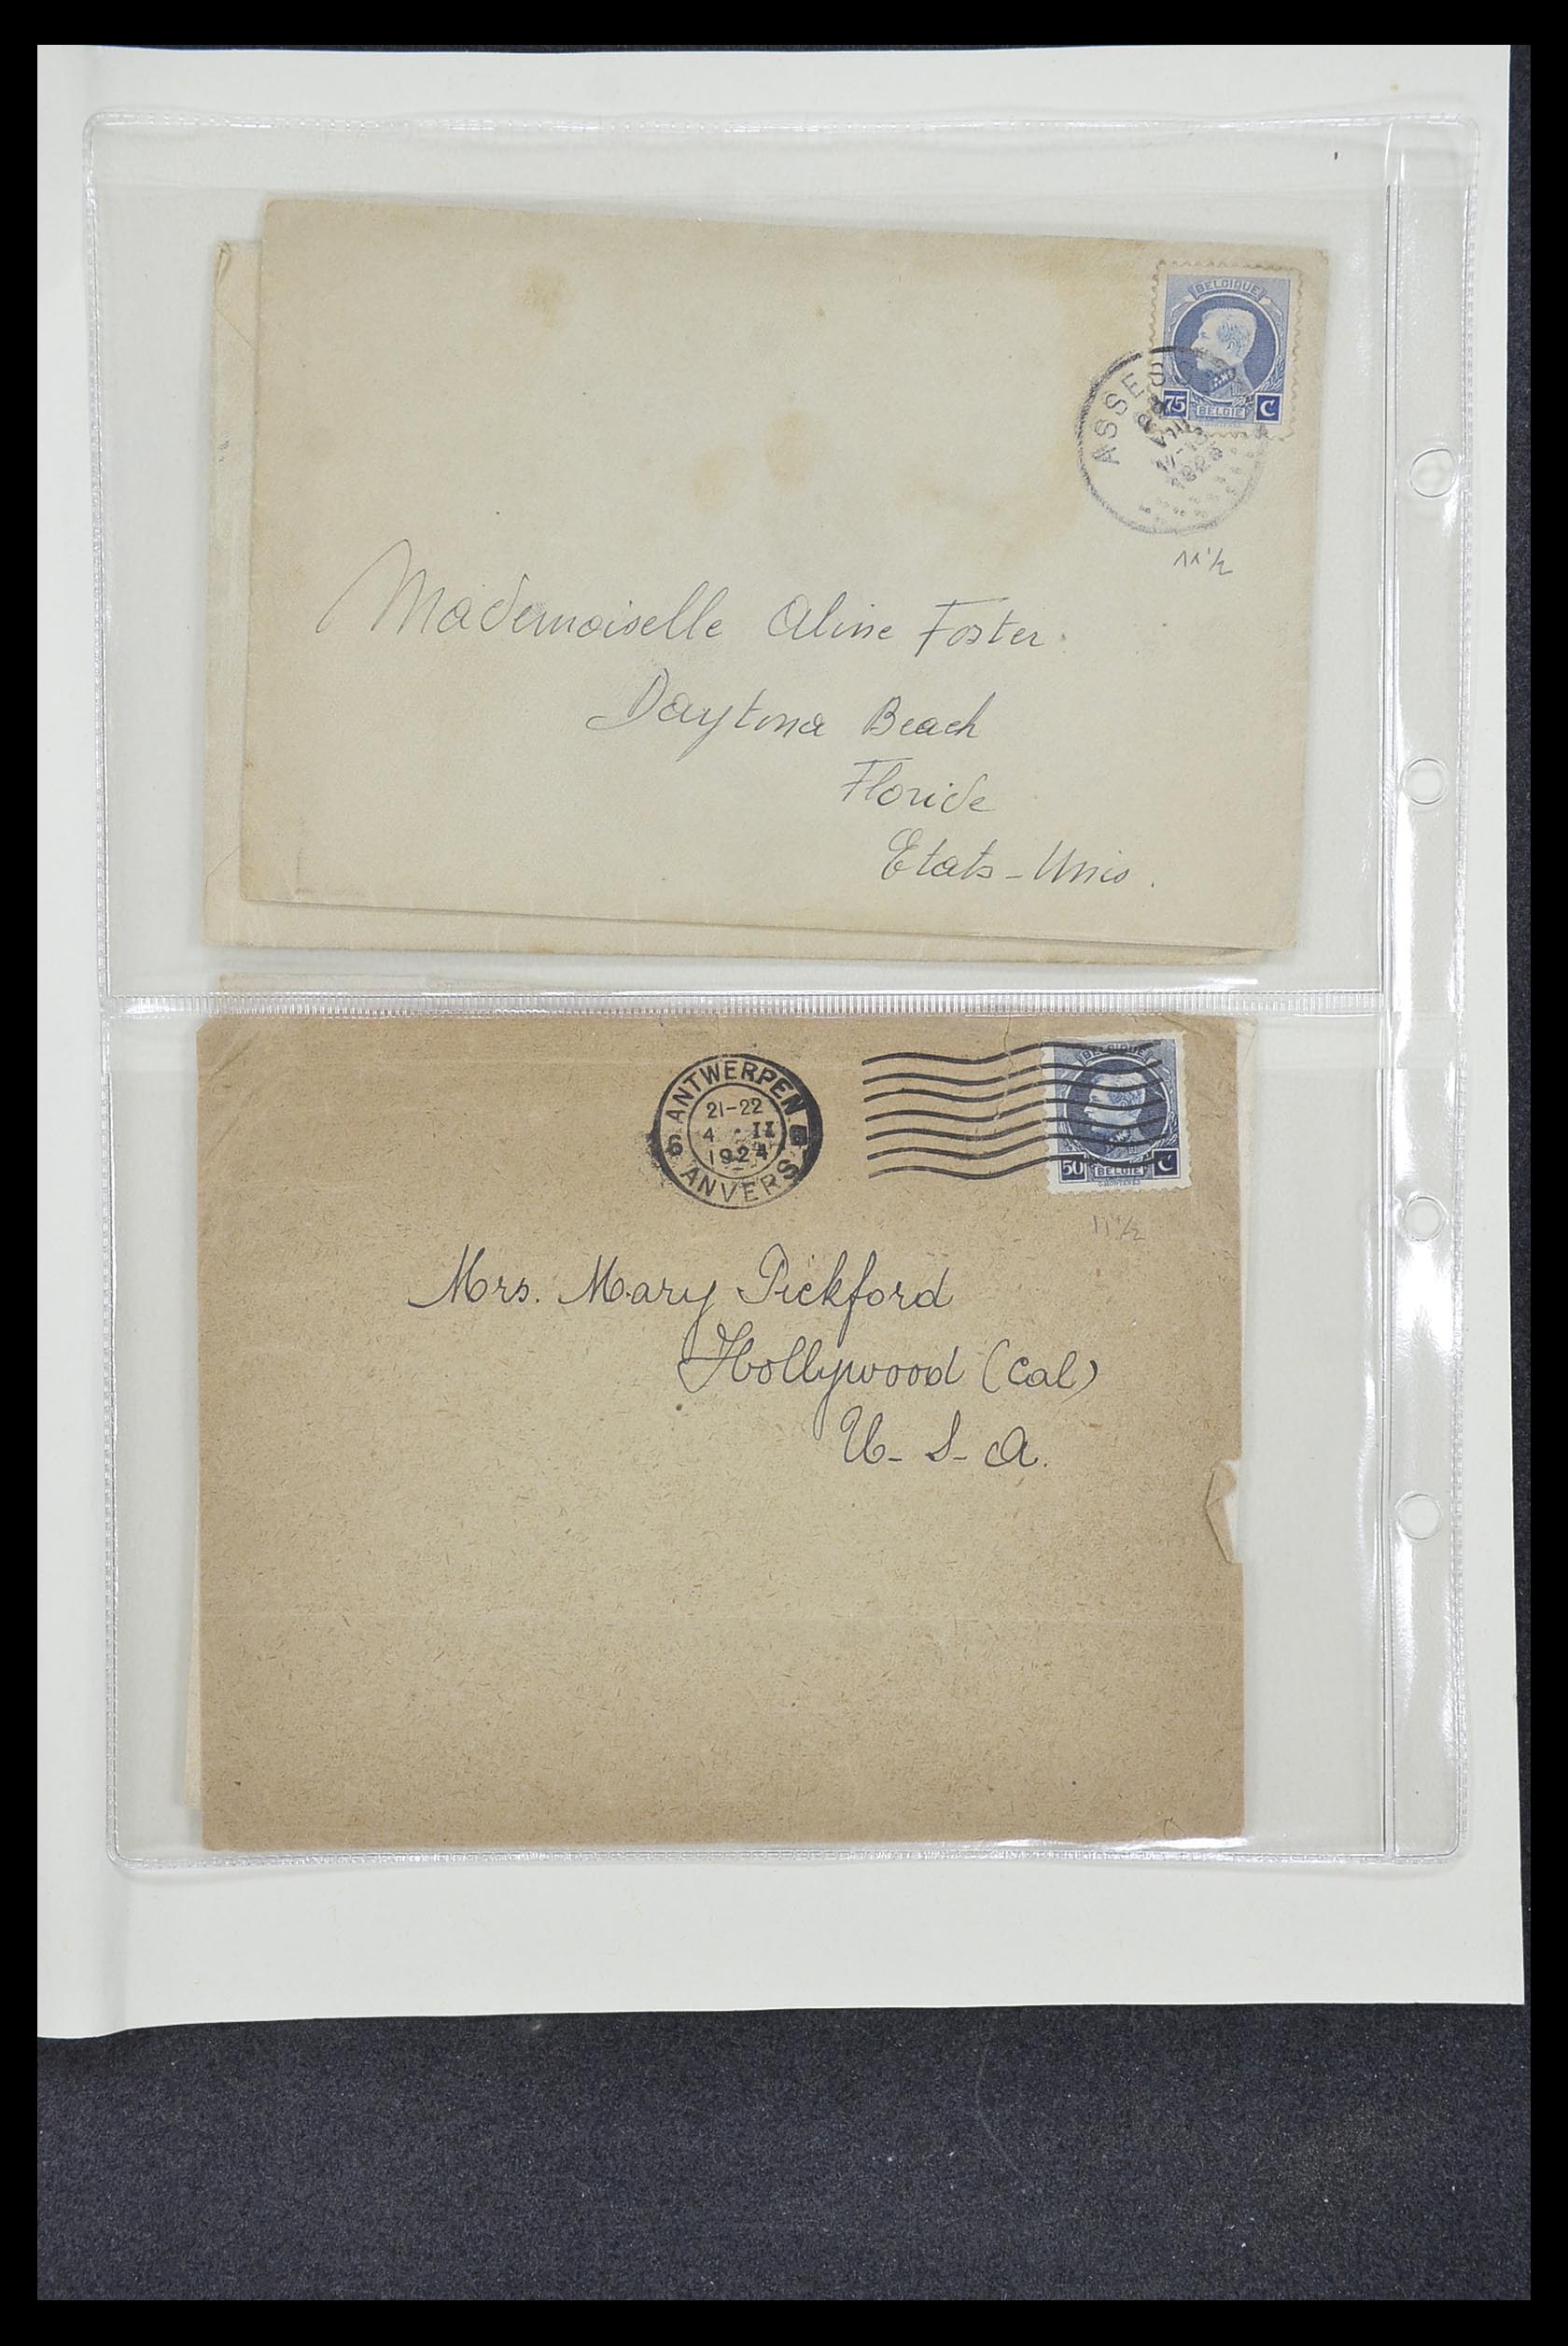 BELGIQUE
75 BELGIË C
ASSE
11 1/2
Mademoiselle Aline Foster
Daytona Beach
Floride
Etats-Unis.
ANTWERPEN
21-22
6 4 II
1924
ANVERS
BELGIQUE
50 BELGIË C
11 1/2
Mrs. Mary Pickford
Hollywood (Cal)
U-S-A.